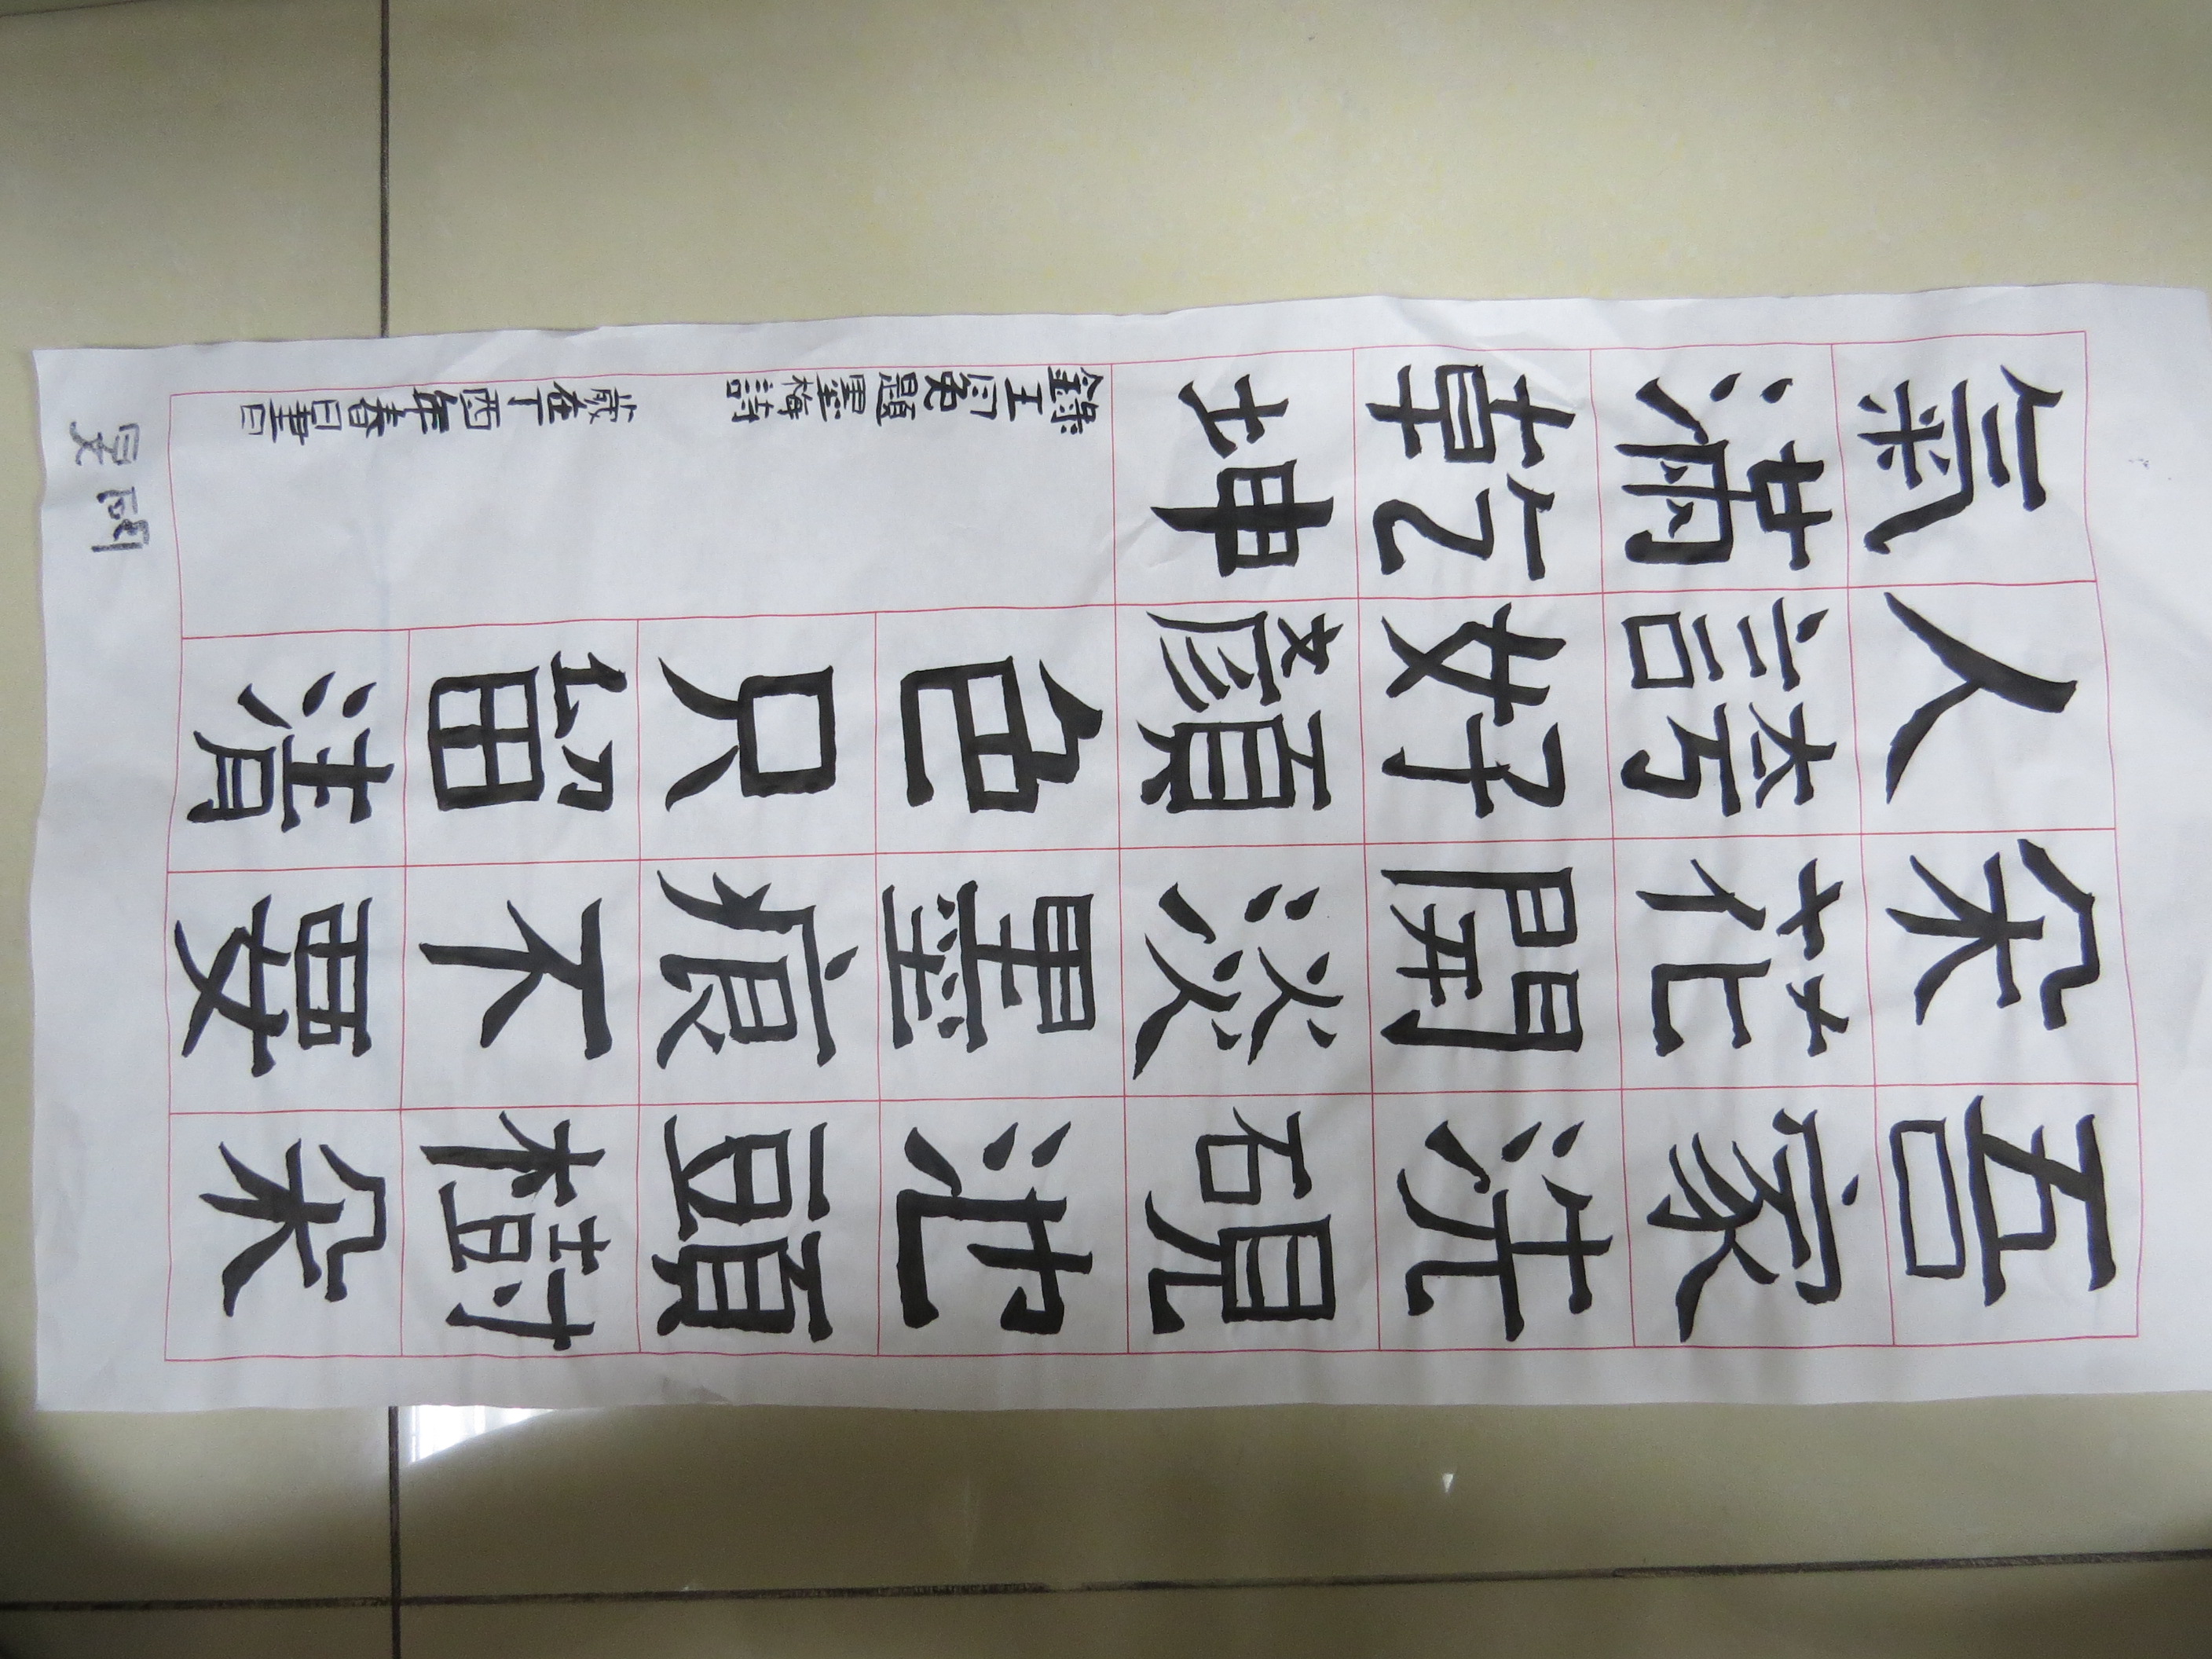 吾家洗硯池頭樹朵
朵花開淡墨痕不要
人誇好顏色只留清
氣滿乾坤
錄王冕題墨梅詩 歲在丁酉年春日書